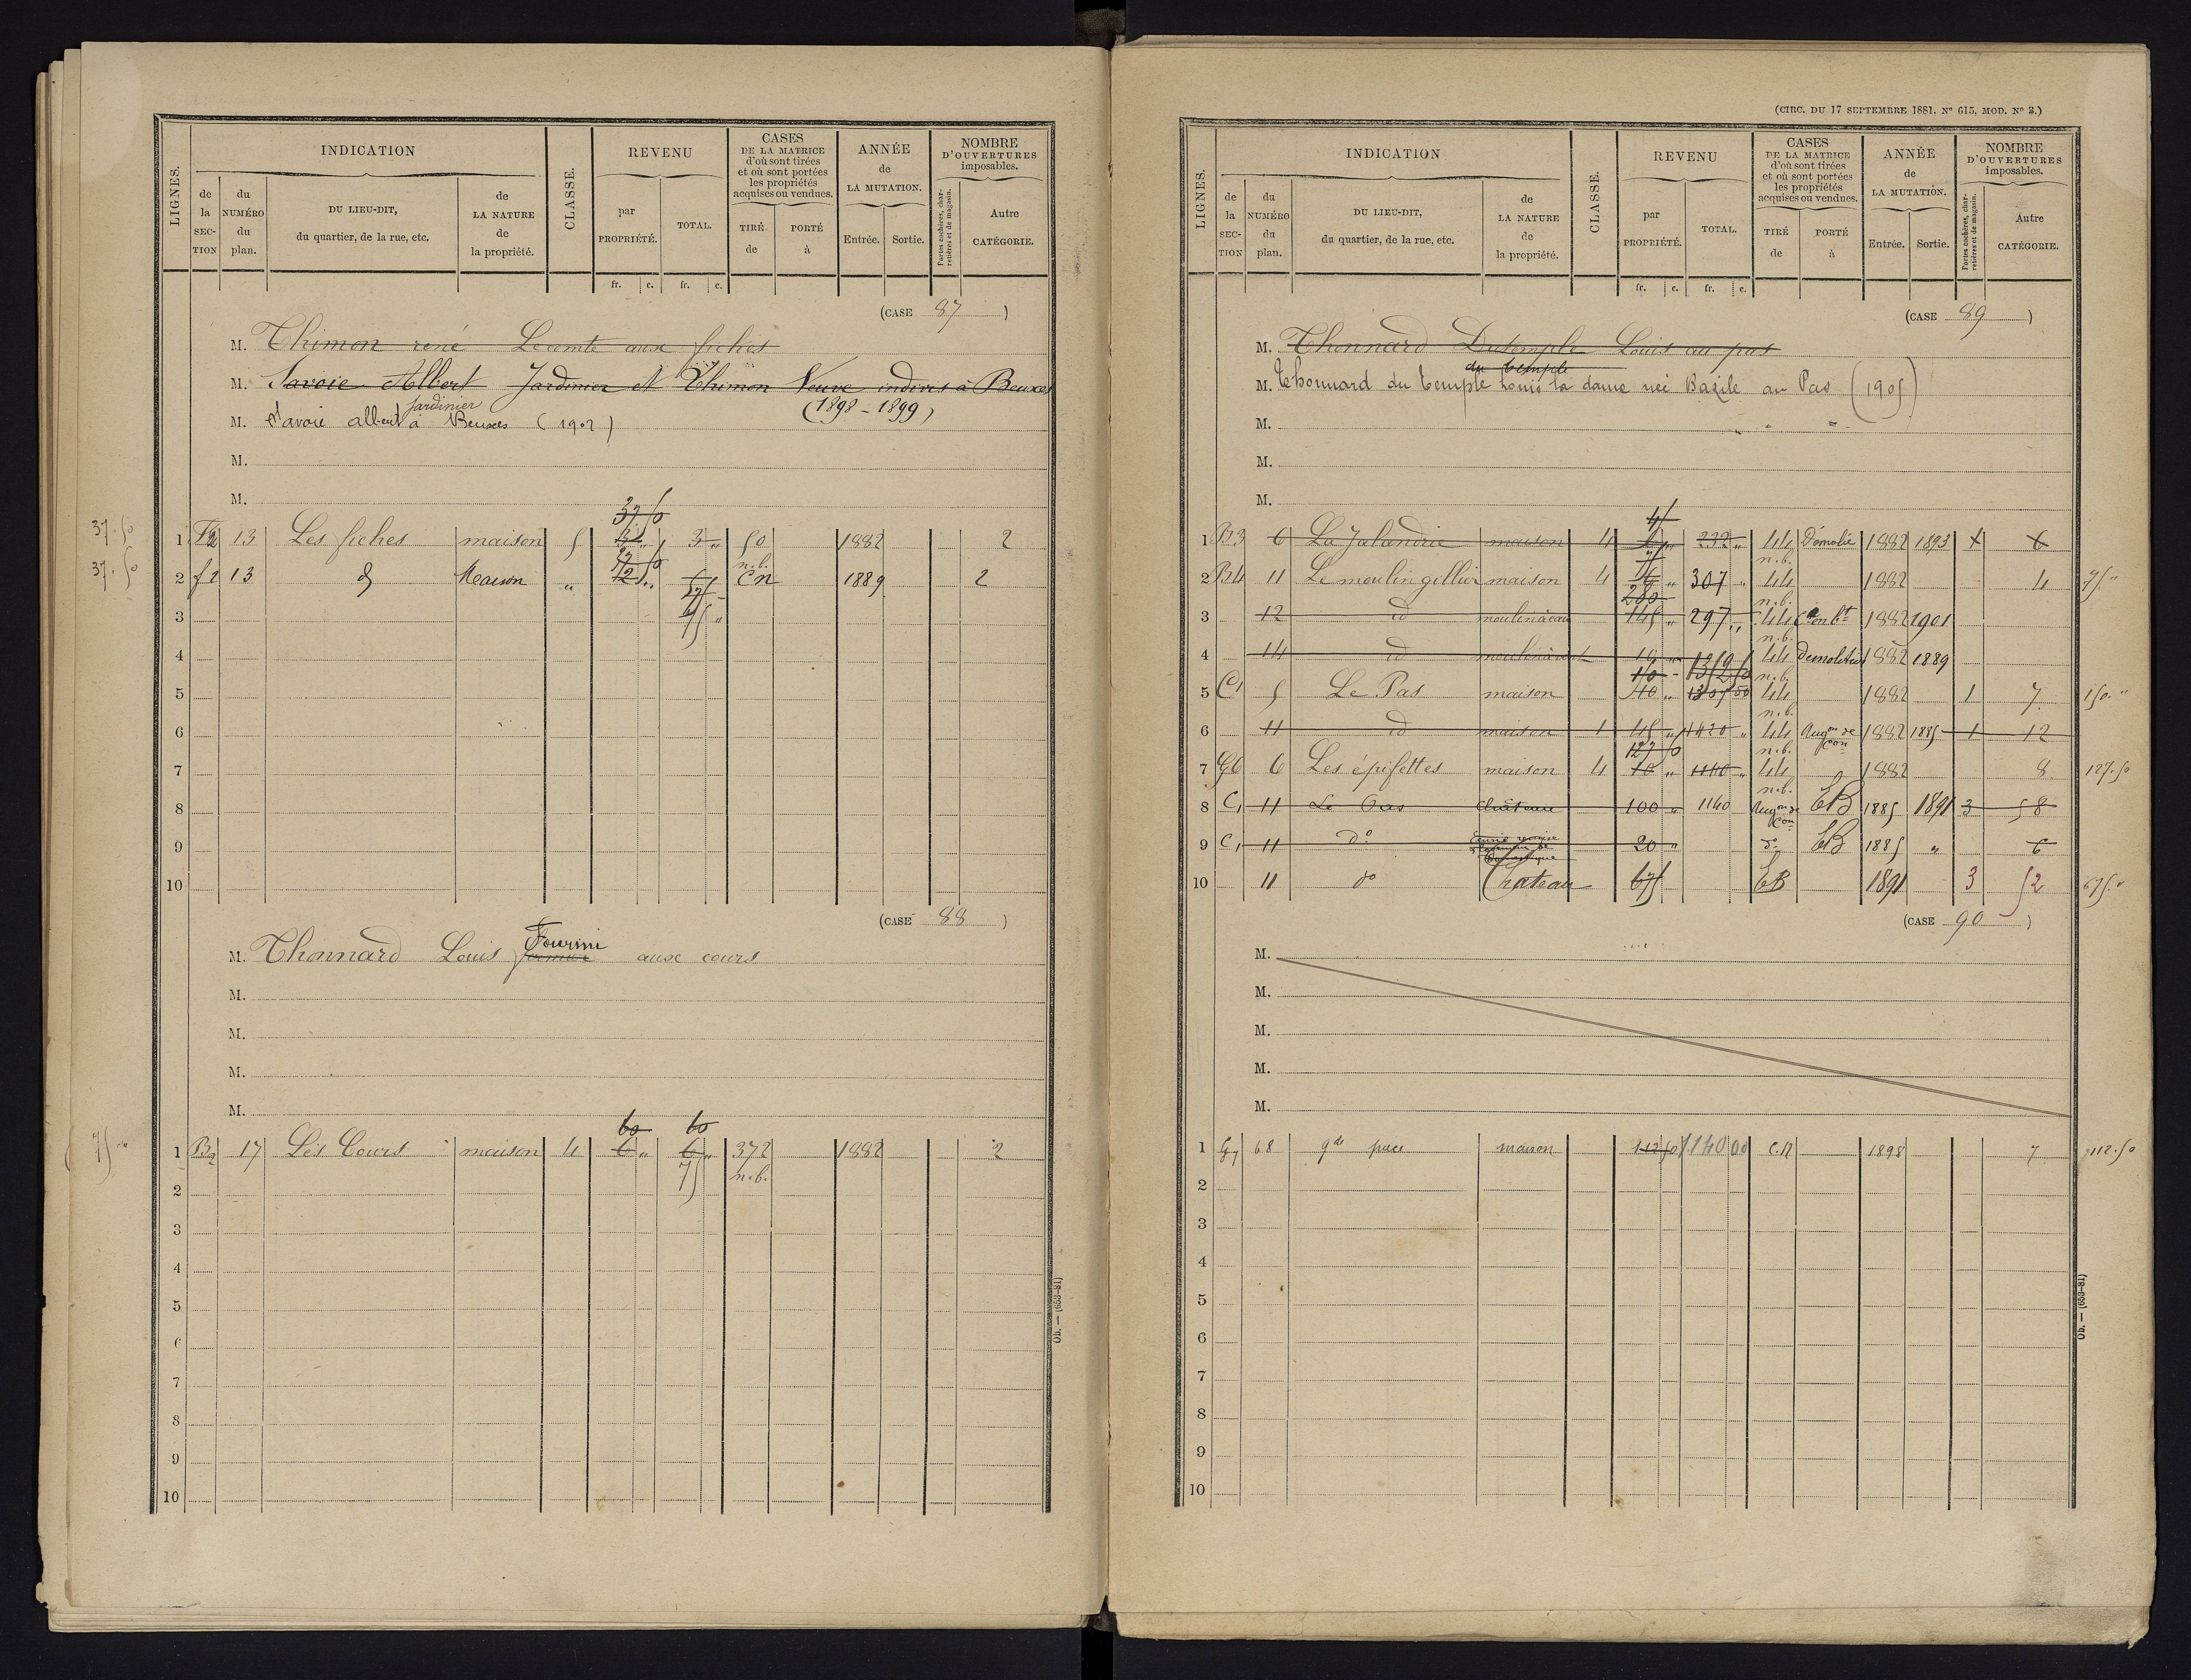 LIGNES.
INDICATION
de la SECTION
du NUMÉRO du plan.
DU LIEU-DIT, du quartier, de la rue, etc.
de LA NATURE de la propriété.
CLASSE.
REVENU
par PROPRIÉTÉ.
TOTAL.
CASES DE LA MATRICE d'où sont tirées et où sont portées les propriétés acquises ou vendues.
TIRÉ de
PORTÉ à
ANNÉE de LA MUTATION.
Entrée.
Sortie.
NOMBRE D'OUVERTURES imposables.
Portes cochères, charretières et de magasin.
Autre CATÉGORIE.
fr. c. fr. c.
(CASE 87)
M. Thimon rené Lecomte aux fiches
M. Savoie Albert Jardinier et Thimon Veuve indivis à Beuxes
(1898-1899)
jardinier
M. Savoie albert à Beuxes (1902)
M.
M.
37.50
37.50 1 F2 13 Les fiches maison 5 3 „ 50 1882 2
n.b.
37.50 2 f2 13 d Maison „ Cn 1889 2
3 75 „
4
5
6
7
8
9
10
(CASE 88)
Fourini
M. Thonnard Louis aux cours
M.
M.
M.
M.
60 60
75 „ 1 B2 17 Les Cours maison 4 6 „ 6 „ 372 1882 2
2 75 n.b.
3
4
5
6
7
8
9
10
Ob. — (653-81)
(CIRC. DU 17 SEPTEMBRE 1881, Nº 615, MOD. Nº 3.)
LIGNES.
INDICATION
de la SECTION
du NUMÉRO du plan.
DU LIEU-DIT, du quartier, de la rue, etc.
de LA NATURE de la propriété.
CLASSE.
REVENU
par PROPRIÉTÉ.
TOTAL.
CASES DE LA MATRICE d'où sont tirées et où sont portées les propriétés acquises ou vendues.
TIRÉ de
PORTÉ à
ANNÉE de LA MUTATION.
Entrée.
Sortie.
NOMBRE D'OUVERTURES imposables.
Portes cochères, charretières et de magasin.
Autre CATÉGORIE.
fr. c. fr. c.
(CASE 89)
M. Thonnard Dutemple Louis au pas
du temple
M. Thonnard du temple Louis la dame née Bazile au Pas (1905)
M.
M.
M.
1 B3 6 La Jalandrie maison 4 232 „ 44 Démolie 1882 1893 6
n.b.
2 B4 11 Le moulin gillier maison 4 307 „ 44 1882 4 75 „
280 n.b.
3 12 id moulin à eau 145 „ 297 „ 44 1882 1901
n.b.
4 14 id moulin à vent 10 „ 1312.50 44 Demolition 1882 1889
n.b.
5 C1 5 Le Pas maison 1307 50 44 1882 1 7 150 „
n.b.
6 11 id maison 1 45 „ 1420 „ 44 Augon de Con 1882 1885 1 12
127 50 n.b.
7 G6 6 Les épifettes maison 4 10 „ 1140 „ 44 1882 8 127.50
n.b.
8 C1 11 Le Pas château 100 „ 1140 Augon de Con EB 1885 1891 3 58
9 C1 11 do 20 „ do EB 1885 „ 6
10 11 do Chateau 675 EB 1891 3 52 675 „
(CASE 90)
M.
M.
M.
M.
M.
1 G7 68 gde pièce maison 112 50 1140 00 C.N 1898 7 112.50
2
3
4
5
6
7
8
9
10
Ob. — (653-81)